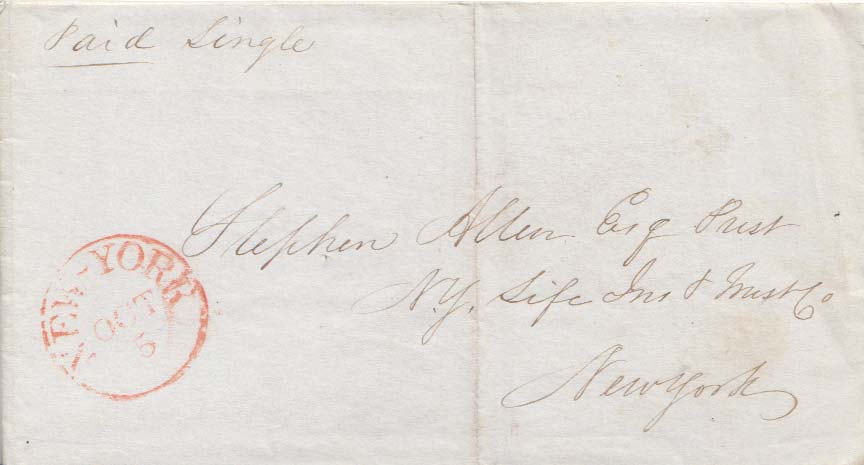 Paid Single
Stephen Allen Esq Prest
N.Y. Life Ins & Trust Co
New York
NEW-YORK
OCT
6